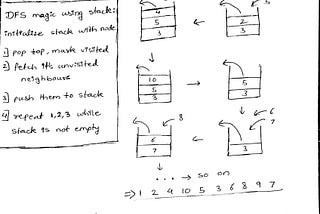 DFS magic using stack:
initialize stack with node
1) pop top, mark visited
2) fetch its unvisited
neighbours
3) push them to stack
4) repeat 1,2,3 while
stack is not empty
4
5
3
2
3
10
5
3
5
3
6
7
8
6
7
3
. . . . → so on
⇒ 1 2 4 10 5 3 6 8 9 7